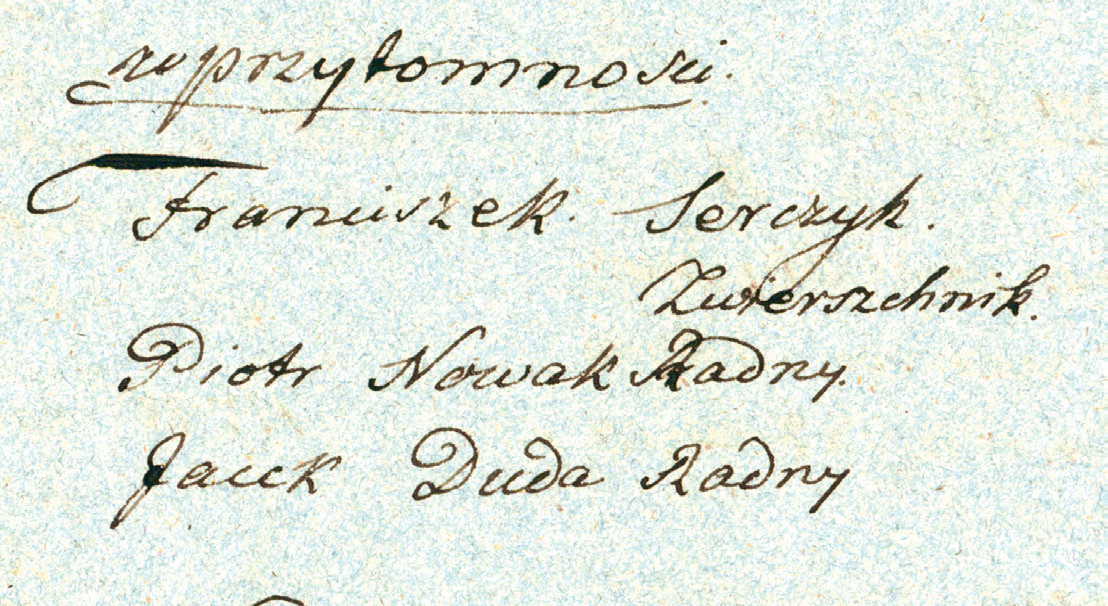 w przytomnosci.
Franciszek Serczyk.
Zwierszchnik.
Piotr Nowak Radny.
Jacek Duda Radny